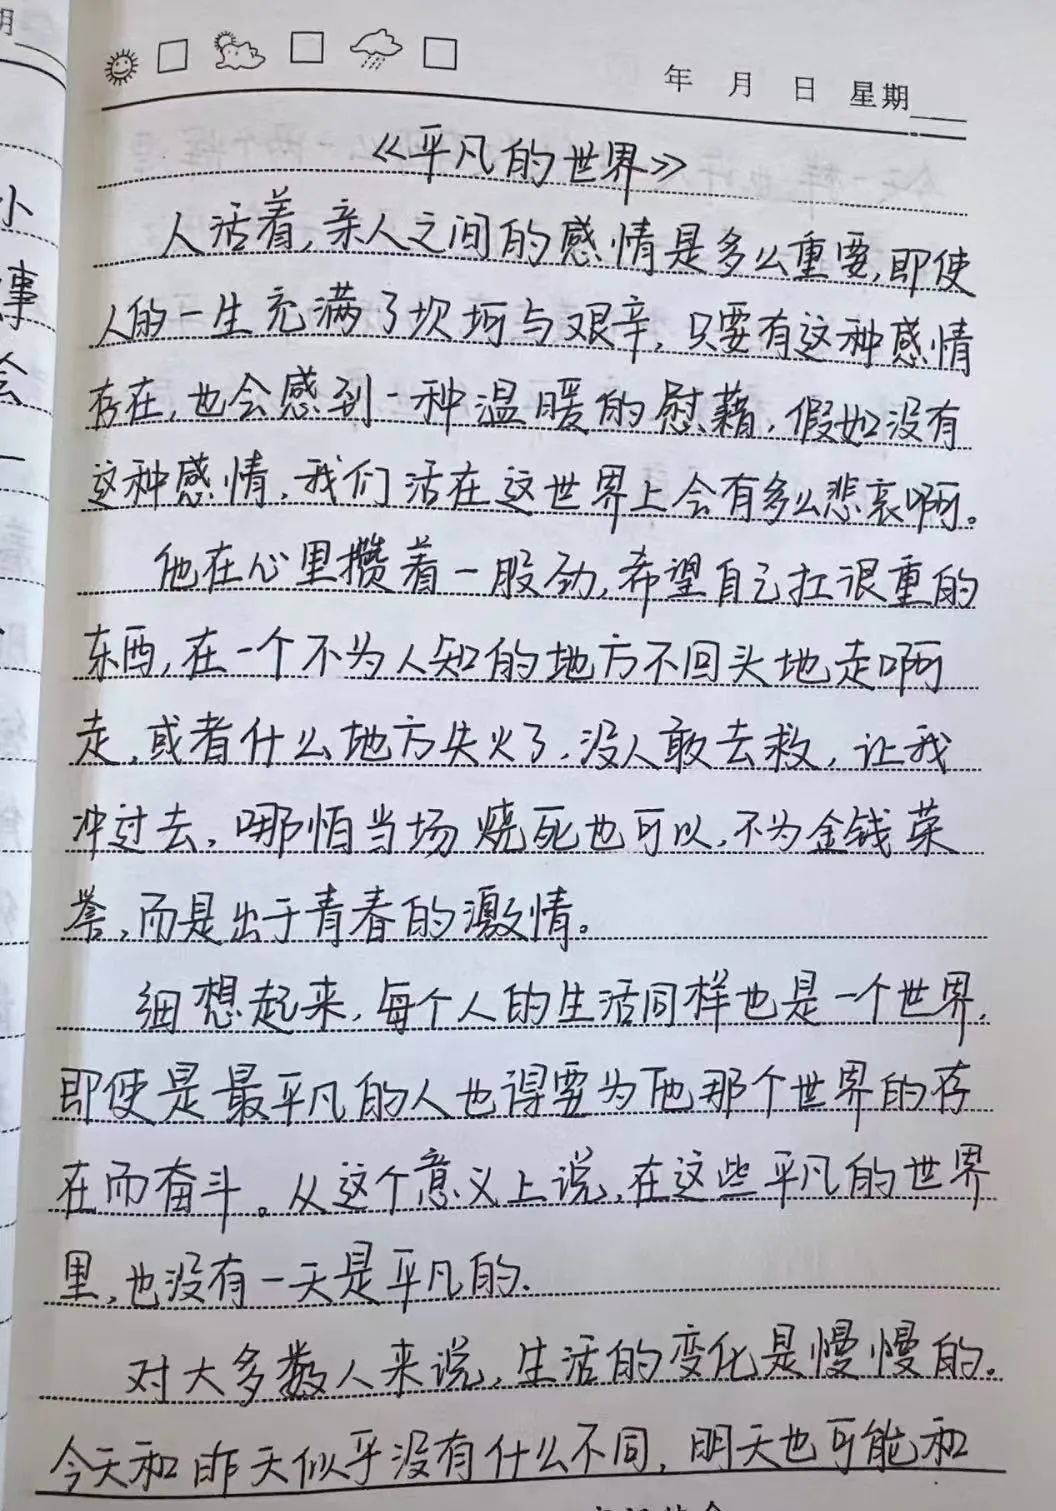 年 月 日 星期
《平凡的世界》
人活着,亲人之间的感情是多么重要,即使
人的一生充满了坎坷与艰辛,只要有这种感情
存在,也会感到一种温暖的慰藉,假如没有
这种感情,我们活在这世界上会有多么悲哀啊。
他在心里攒着一股劲,希望自己扛很重的
东西,在一个不为人知的地方不回头地走啊
走,或者什么地方失火了,没人敢去救,让我
冲过去,哪怕当场烧死也可以,不为金钱荣
誉,而是出于青春的激情。
细想起来,每个人的生活同样也是一个世界,
即使是最平凡的人也得要为他那个世界的存
在而奋斗。从这个意义上说,在这些平凡的世界
里,也没有一天是平凡的.
对大多数人来说,生活的变化是慢慢的。
今天和昨天似乎没有什么不同,明天也可能和